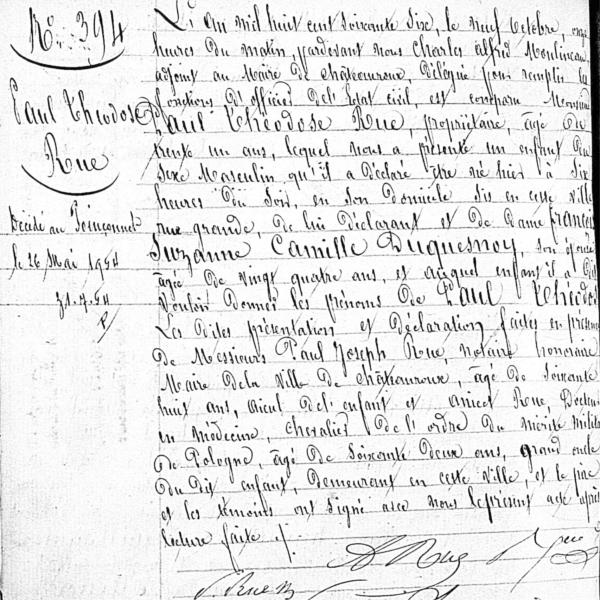 N° 394
Paul Théodose
Rue
Décédé au Poinçonnet
le 26 Mai 1954
31.7.54
L'An mil huit cent soixante six, le neuf Octobre, onze
heures du matin, pardevant nous Charles Alfred Moulineau,
adjoint au Maire de Châteauroux, délégué pour remplir les
fonctions d'officier de l'Etat civil, est comparu Monsieur
Paul Théodose Rue, propriétaire, âgé de
trente un ans, lequel nous a présenté un enfant du
sexe Masculin qu'il a déclaré être né hier à six
heures du soir, en son domicile sis en cette ville
rue grande, de lui déclarant et de dame françoise
Suzanne Camille Duquesnoy, son épouse
âgée de vingt quatre ans, et auquel enfant il a dit
vouloir donner les prénoms de Paul Théodose
Les dites présentation et déclaration faites en présence
de Messieurs Paul Joseph Rue, notaire honoraire
Maire de la ville de Châteauroux, âgé de soixante
huit ans, aïeul de l'enfant et anicet Rue, Docteur
en médecine, chevalier de l'ordre du mérite militaire
de Pologne, âgé de soixante deux ans, grand oncle
du dit enfant, demeurant en cette ville, et le père
et les témoins ont signé avec nous le présent acte après
lecture faite ./.
A Rue
P. Rue